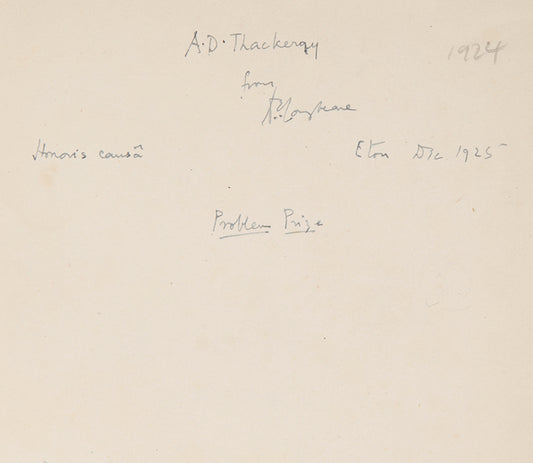 A.D. Thackeray
1924
from
Honoris causâ
Eton Dec 1925
Problem Prize